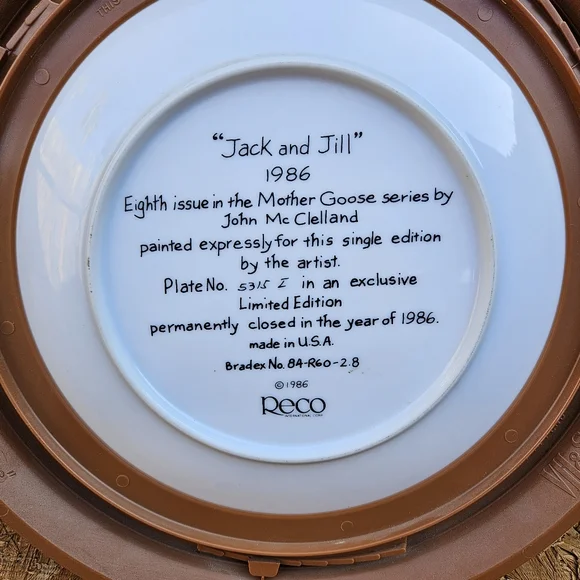 “Jack and Jill”
1986
Eighth issue in the Mother Goose series by
John McClelland
painted expressly for this single edition
by the artist.
Plate No. 5315 I in an exclusive
Limited Edition
permanently closed in the year of 1986.
made in U.S.A.
Bradex No. 84-R60-2.8
©1986
Reco
INTERNATIONAL CORP.
THIS